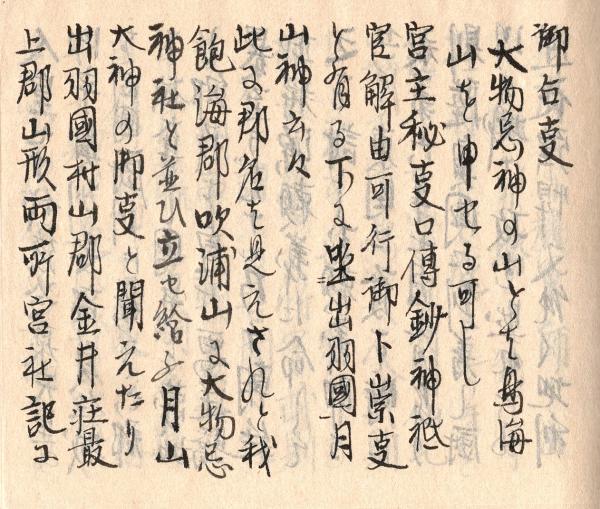 御占叓
大物忌神の山とは鳥海
山を申せる可し
宮主秘叓口傳鈔神祇
官解由可行御卜祟叓
と有る下に坐出羽國月
山神云々
此に郡名は見えされと我
飽海郡吹浦山に大物忌
神社と並ひ立せ給ふ月山
大神の御叓と聞えたり
出羽國村山郡金井莊最
上郡山形両所宮社記に